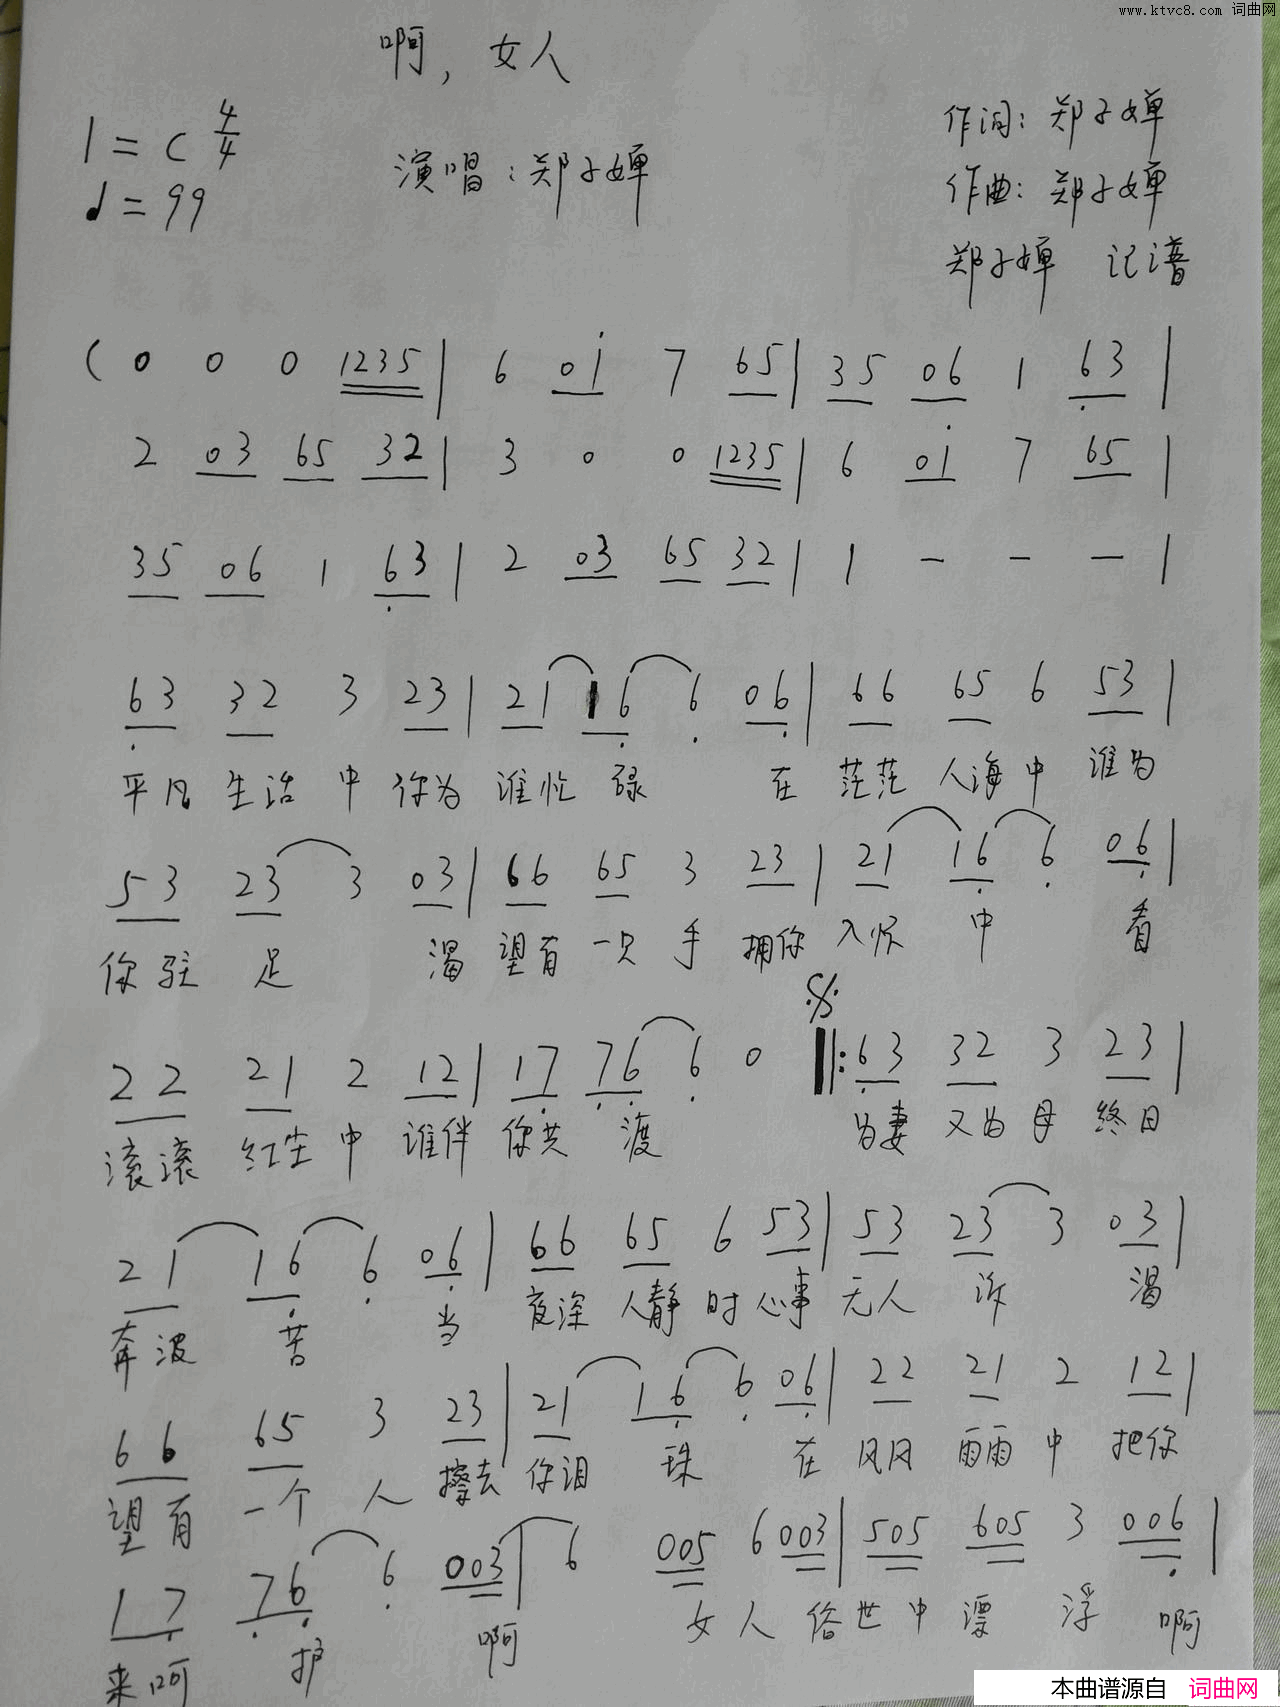 www.ktvc8.com 词曲网
啊，女人
1=C 4/4
作词：郑子婵
♩=99
演唱：郑子婵
作曲：郑子婵
郑子婵 记谱
( 0 0 0 1235 | 6 0i 7 65 | 35 06 1 63 |
2 03 65 32 | 3 0 0 1235 | 6 0i 7 65 |
35 06 1 63 | 2 03 65 32 | 1 - - - |
63 32 3 23 | 21 16 6 06 | 66 65 6 53 |
平凡 生活 中 你为 谁忙 碌 在 茫茫 人海 中 谁为
53 23 3 03 | 66 65 3 23 | 21 16 6 06 |
你驻 足 渴 望有 一只 手 拥你 入怀 中 看
22 21 2 12 | 17 76 6 0 𝄋 ‖: 63 32 3 23 |
滚滚 红尘 中 谁伴 你共 渡 为妻 又为 母 终日
21 16 6 06 | 66 65 6 53 | 53 23 3 03 |
奔波 苦 当 夜深 人静 时 心事 无人 诉 渴
66 65 3 23 | 21 16 6 06 | 22 21 2 12 |
望有 一个 人 擦去 你泪 珠 在 风风 雨雨 中 把你
17 76 6 003 | 6 005 6 003 | 505 605 3 006 |
来呵 护 啊 女 人 俗 世 中 漂 浮 啊
本曲谱源自 词曲网